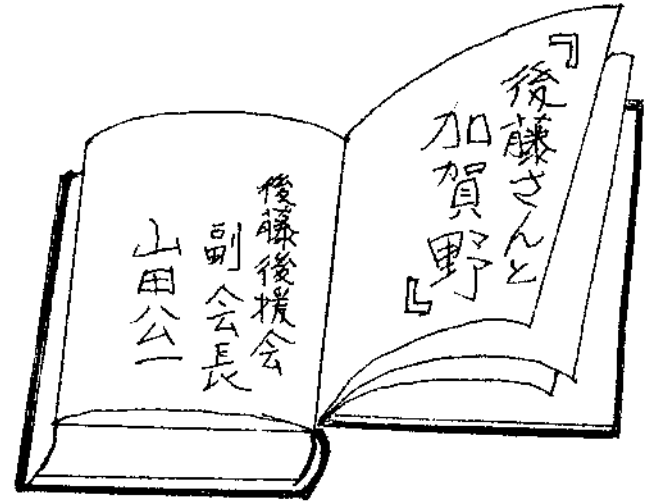 『後藤さんと
加賀野』
後藤後援会
副会長
山田公一